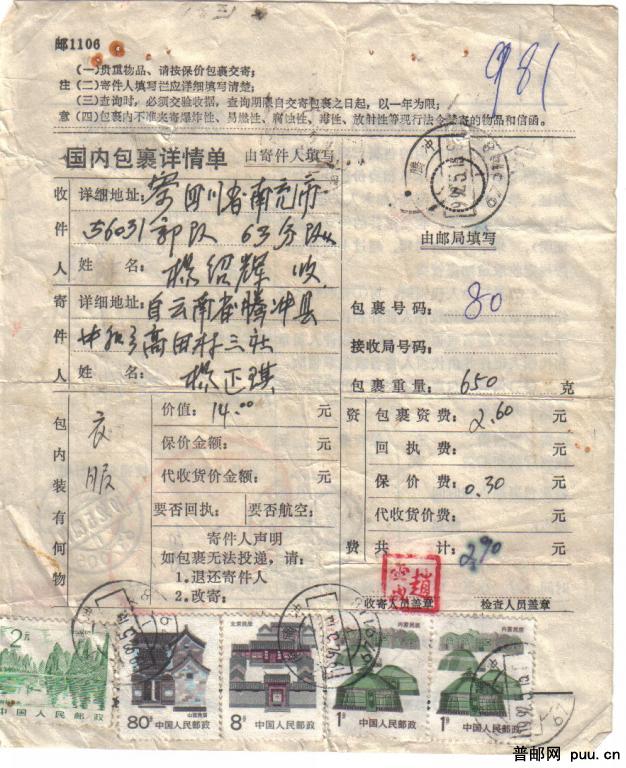 邮1106
981
(一)贵重物品、请按保价包裹交寄;
注 (二)寄件人填写栏应详细填写清楚;
(三)查询时,必须交验收据,查询期限自交寄包裹之日起,以一年为限;
意 (四)包裹内不准夹寄爆炸性、易燃性、腐蚀性、毒性、放射性等现行法令禁寄的物品和信函。
国内包裹详情单 由寄件人填写
收件人
详细地址: 寄四川省南充市
56031部队 63分队
姓 名: 杨绍辉 收
寄件人
详细地址: 自云南省腾冲县
高田村三社
姓 名: 杨正琪
由邮局填写
包裹号码: 80
接收局号码:
包裹重量: 650 克
包内装有何物
衣服
价值: 14.00 元
保价金额: 元
代收货价金额: 元
要否回执: 要否航空:
寄件人声明
如包裹无法投递,请:
1.退还寄件人
2.改寄:
资费
包裹资费: 2.60 元
回执费: 元
保价费: 0.30 元
代收货价费: 元
共计: 2.90 元
赵
收寄人员盖章 检查人员盖章
2元
中国人民邮政
80分 中国人民邮政
山西民居
北京民居
8分 中国人民邮政
内蒙民居
1分 中国人民邮政
内蒙民居
1分 中国人民邮政
普邮网 puu.cn